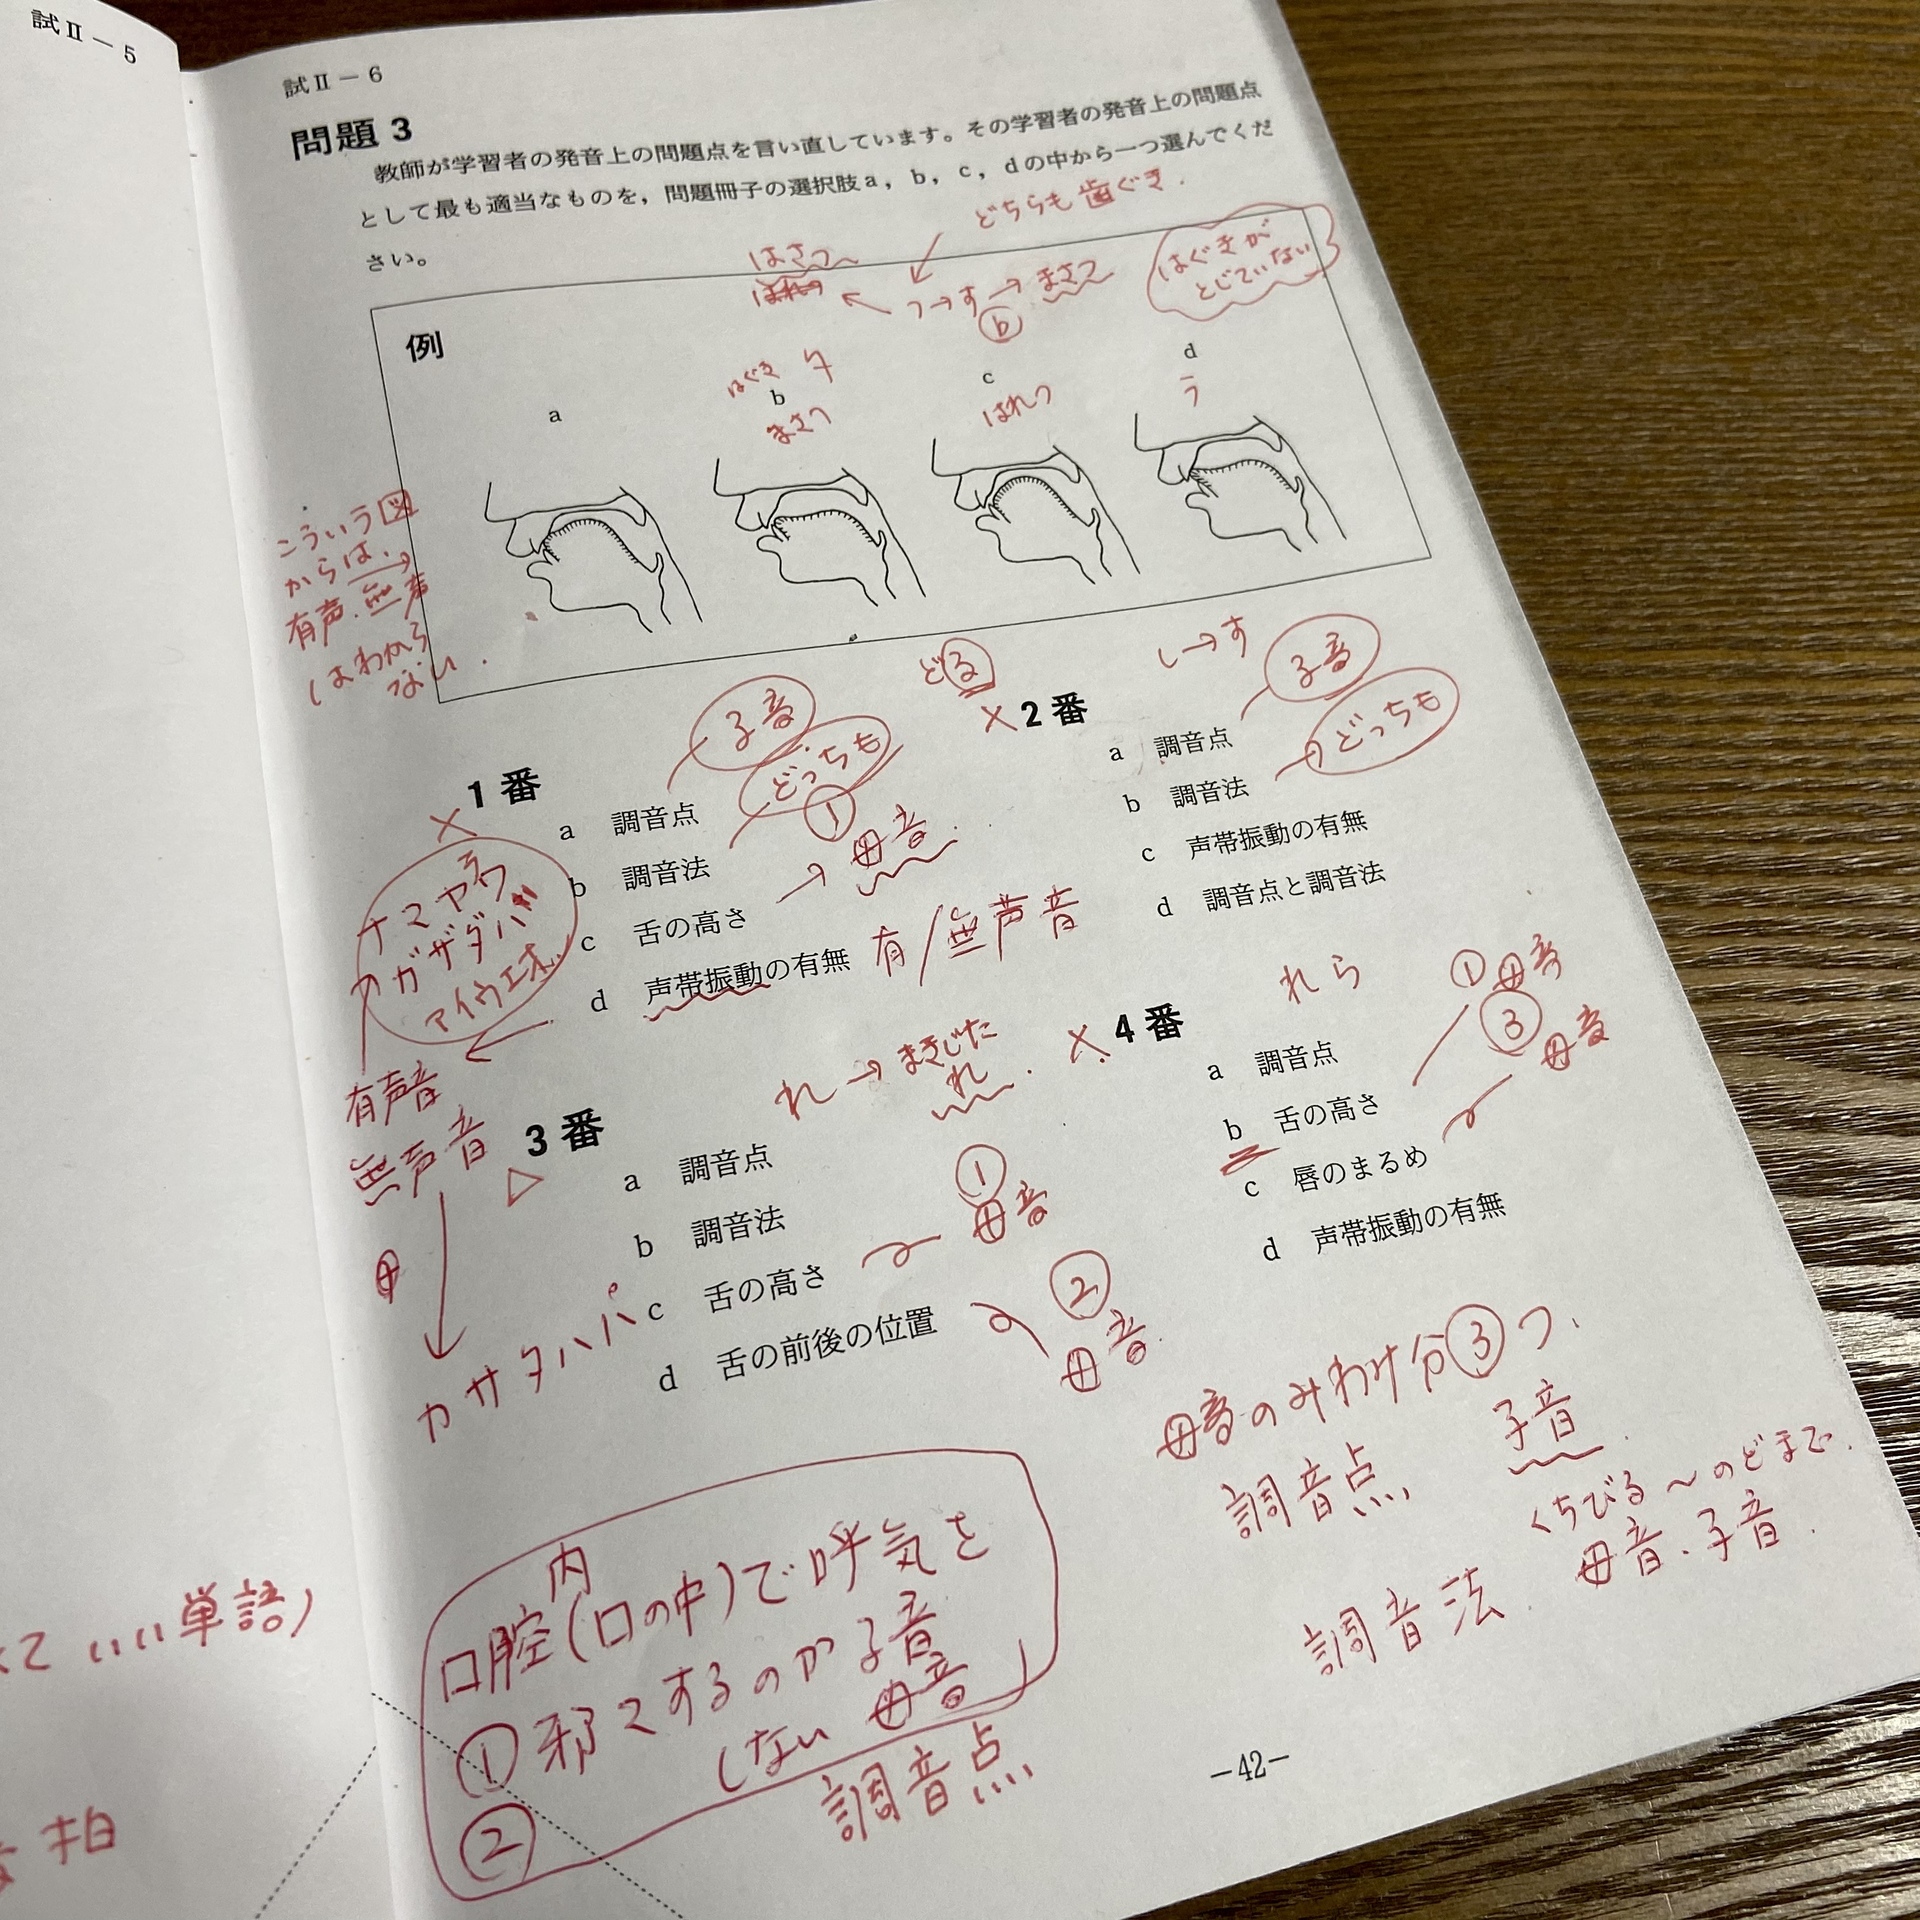 試Ⅱ－5
試Ⅱ－6
問題3
教師が学習者の発音上の問題点を言い直しています。その学習者の発音上の問題点
として最も適当なものを，問題冊子の選択肢a，b，c，dの中から一つ選んでくだ
さい。
どちらも歯ぐき.
はさつ
つ→す→まさつ
b
はぐきが
とじていない
例
a
はぐき
b
まさつ
c
はれつ
d
う
こういう図
からは、
有声.無声
はわから
ない.
1番
子音
どっちも
a 調音点
b 調音法
①
c 舌の高さ
→母音.
d 声帯振動の有無
有/無声音
ナマヤラワ
ガザダバ
アイウエオ
有声音
無声音
カサタハパ
どる
2番
し→す
子音
どっちも
a 調音点
b 調音法
c 声帯振動の有無
d 調音点と調音法
3番
れ→まきじた
れ.
a 調音点
b 調音法
c 舌の高さ
①
母音
d 舌の前後の位置
②
母音.
4番
れら
①母音
③
母音
a 調音点
b 舌の高さ
c 唇のまるめ
d 声帯振動の有無
母音のみわけ分③つ.
調音点,
子音.
くちびる〜のどまで.
調音法
母音、子音.
内
口腔(口の中)で呼気を
①邪マするのか子音
しない 母音
②
調音点
いい単語)
拍
−42−